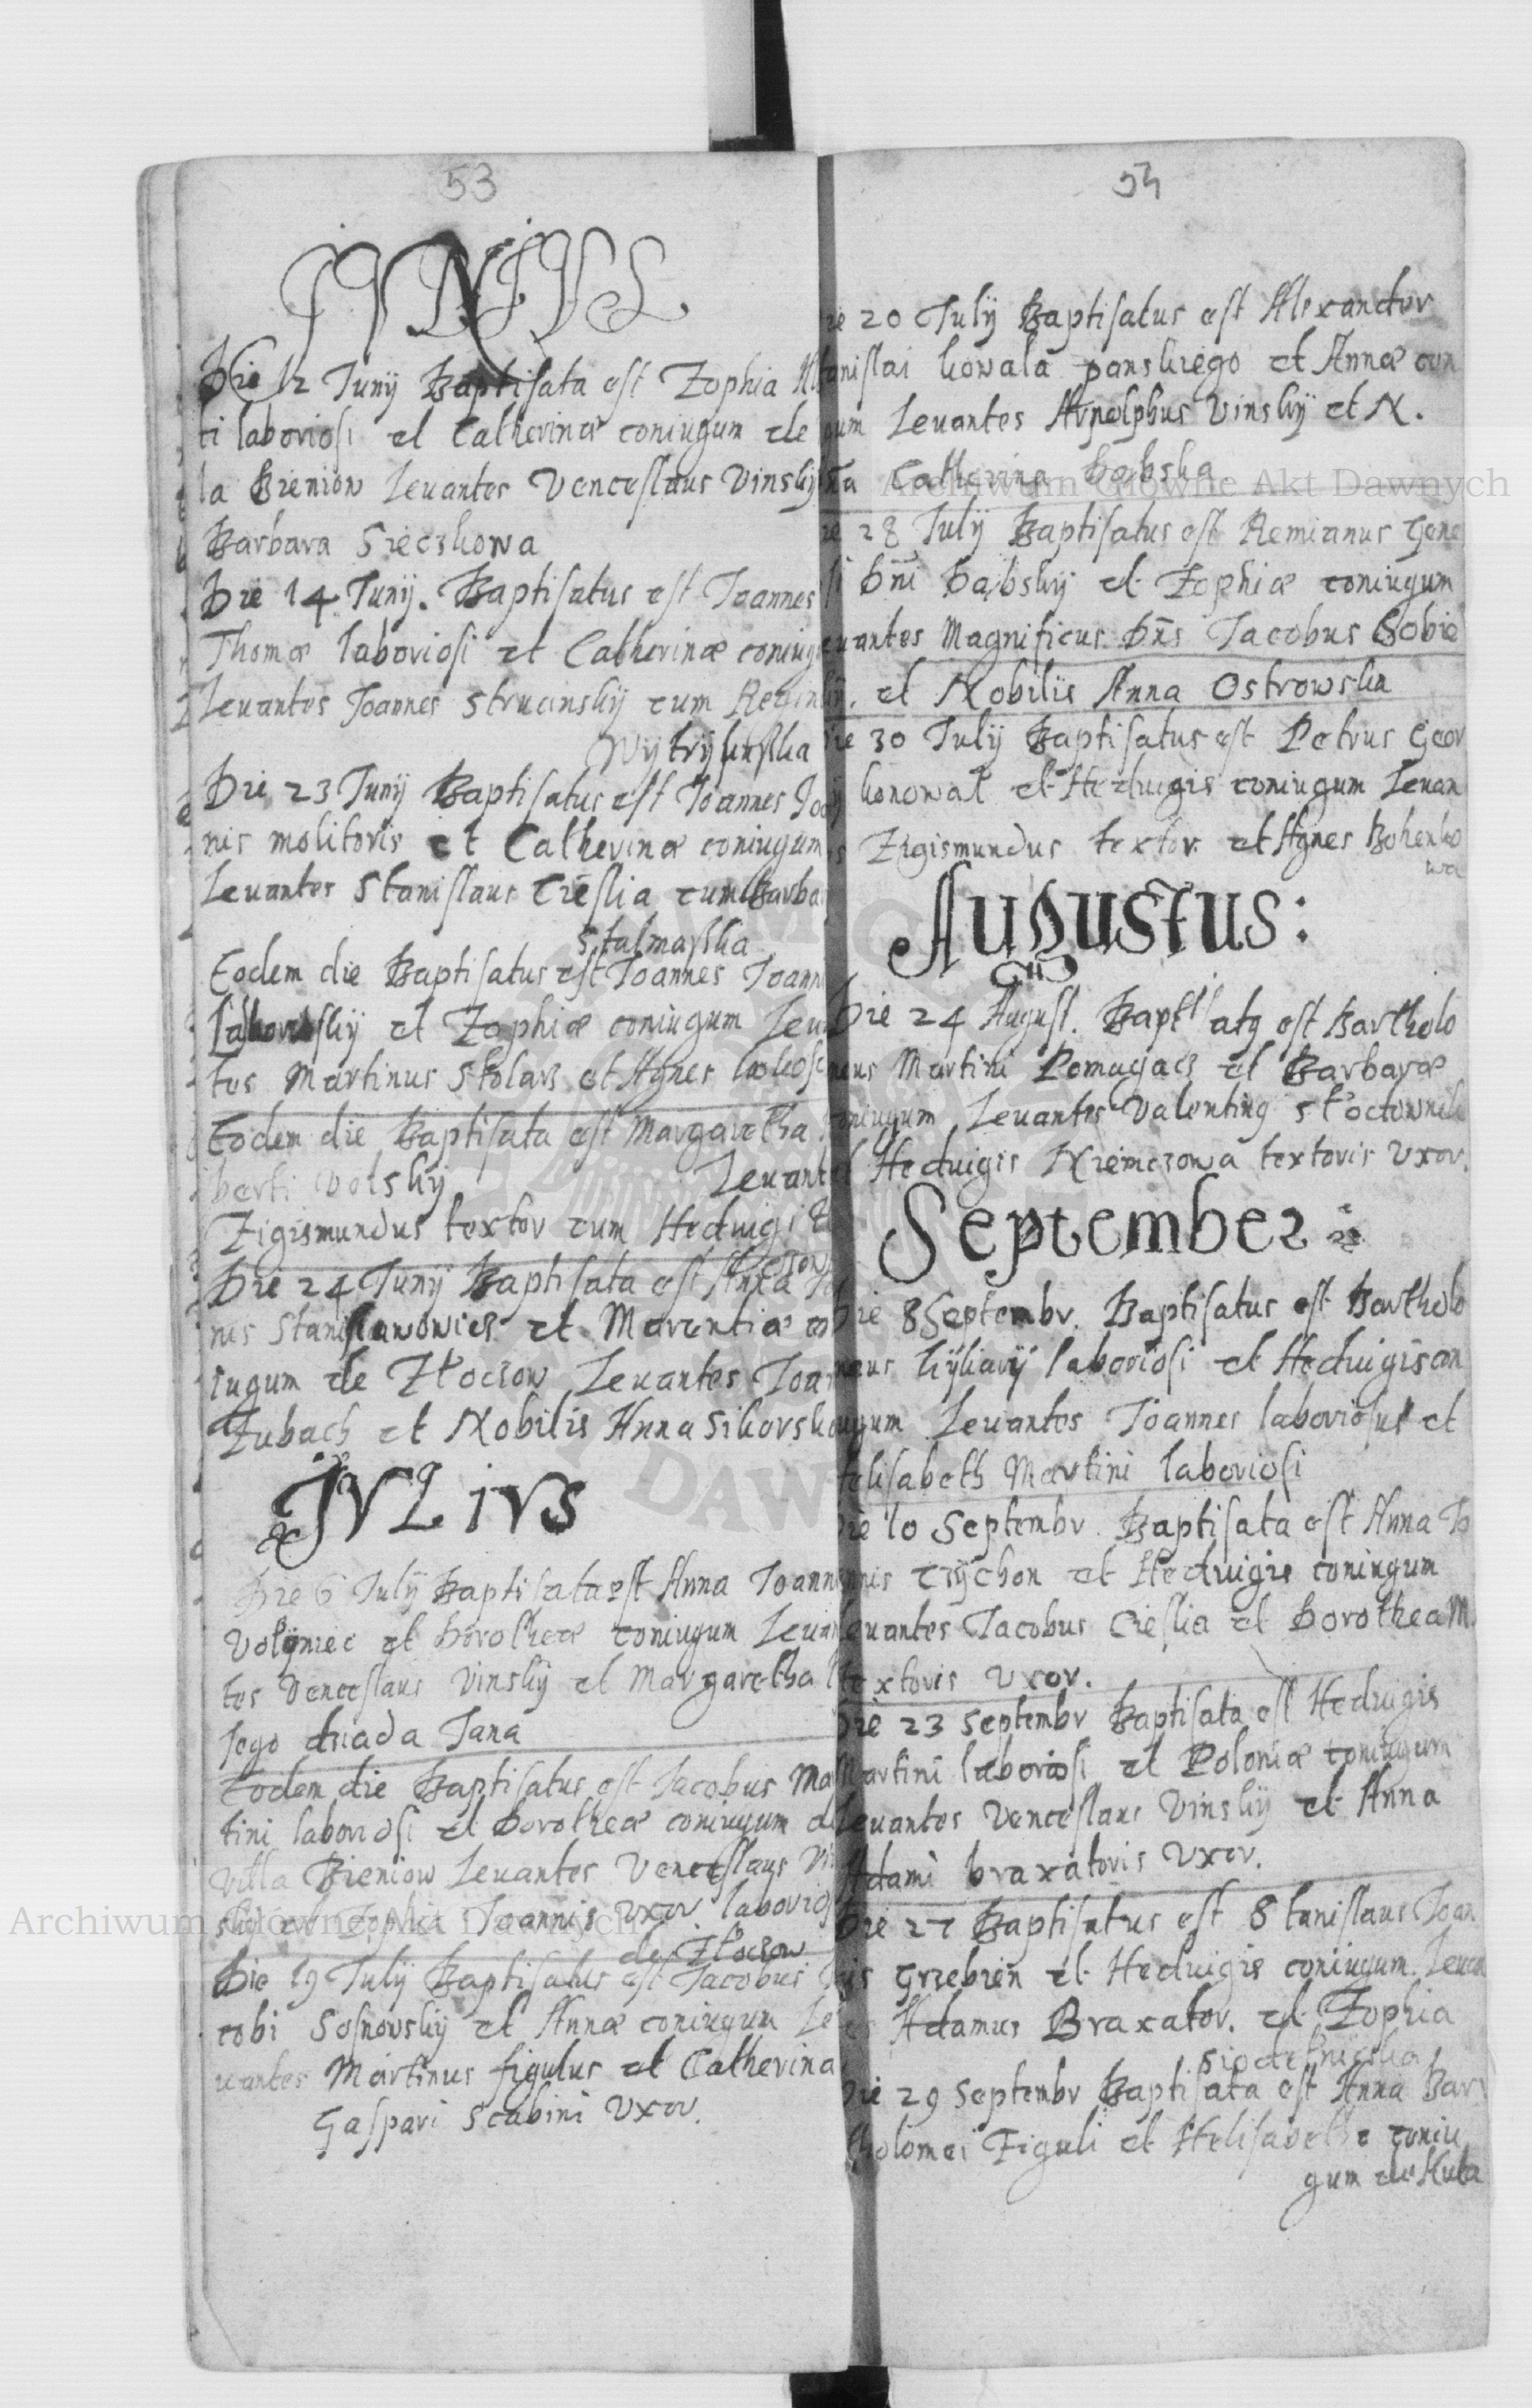 53
JVNIVS
Die 12 Junij Baptisata est Zophia
ti laboriosi et Catherinæ coniugum de
la Bieniow Leuantes Venceslaus Vinskij
Barbara Sieczkowa
Die 14 Junij. Baptisatus est Joannes
Thomæ laboriosi et Catherinæ coniug
Leuantes Joannes Strucinskij cum
Die 23 Junij Baptisatus est Joannes Joa
nis molitoris et Catherinæ coniugum
Leuantes Stanislaus Cieslia cum Barba
Stalmaska
Eodem die Baptisatus est Joannes Joann
et Zophiæ coniugum Leua
tes Martinus Stolarz et Agnes
Eodem die Baptisata est Margaretha
berti Volskij Leuant
Zigismundus textor cum Hedvigi
Die 24 Junij Baptisata est Anna
nis Stanislawowicz et Marentiæ co
iugum de Złoczow Leuantes Joan
Zubacz et Nobilis Anna Sikorsk
JVLiVS
Die 6 Julij Baptisata est Anna Joann
Volyniec et Dorotheæ coniugum Leuan
tes Venceslaus Vinskij et Margaretha
Jego dziada Jana
Eodem die Baptisatus est Jacobus Mar
tini laboriosi et Dorotheæ coniugum d
villa Bieniow Leuantes Venceslaus Vi
skij et Zophia Joannis uxor laborios
de Złoczow
Die 19 Julij Baptisatus est Jacobus
cobi Sosnovskij et Annæ coniugum Le
uantes Martinus figulus et Catherina
Gaspari Scabini Vxor.
54
ie 20 Julij Baptisatus est Alexander
anislai kowala panskiego et Annæ con
gum Leuantes Vinskij et N.
Catherina Babska
ie 28 Julij Baptisatus est Remianus Gene
si Dni Babskij et Zophiæ coniugum
euantes Magnificus Dns Jacobus Sobie
kij. et Nobilis Anna Ostrowska
Die 30 Julij Baptisatus est Petrus Geor
konowal et Hedvigis coniugum Leuan
s Zigismundus textor et Agnes Bohenko
wa
Augustus:
Die 24 August. Baptisatq est Bartholo
meus Martini Pomagacz et Barbaræ
oniugum Leuantes Valentinq
et Hedvigis Niemczowa textoris Vxor.
September
Die 8 Septembr. Baptisatus est Bartholo
meus laboriosi et Hedvigis con
iugum Leuantes Joannes laboriosus et
Helisabeth Martini laboriosi
Die 10 Septembr. Baptisata est Anna Jo
annis Czychon et Hedvigis coniugum
Leuantes Jacobus Cieslia et Dorothea M.
textoris Vxor.
Die 23 Septembr Baptisata est Hedvigis
Martini laboriosi et Poloniæ coniugum
Leuantes Venceslaus Vinskij et Anna
Adami braxatoris Vxor.
Die 27 Baptisatus est Stanislaus Joan
nis Grzebien et Hedvigis coniugum. Leuan
es Adamus Braxator. et Zophia
Die 29 Septembr Baptisata est Anna Bar
tholomei Figuli et Helisabethæ coniu
gum de Huta
Archiwum Główne Akt Dawnych
Archiwum Główne Akt Dawnych